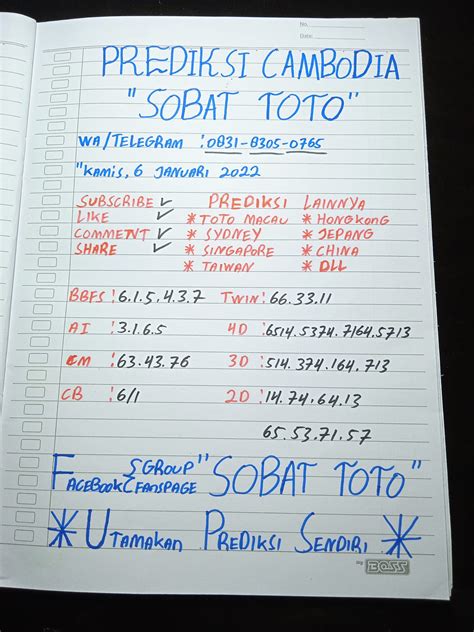 No.
Date.
PREDIKSI CAMBODIA
"SOBAT TOTO"
WA/TELEGRAM : 0831-8305-0765
"KAMIS, 6 JANUARI 2022
SUBSCRIBE ✓ PREDIKSI LAINNYA
LIKE ✓ * TOTO MACAU * HONGKONG
COMMENT ✓ * SYDNEY * JEPANG
SHARE ✓ * SINGAPORE * CHINA
* TAIWAN * DLL
BBFS : 6.1.5.4.3.7 TWIN : 66.33.11
AI : 3.1.6.5 4D : 6514.5374.7164.5713
CM : 63.43.76 3D : 514.374.164.713
CB : 6/1 2D : 14.74.64.13
65.53.71.57
FACEBOOK GROUP FANSPAGE "SOBAT TOTO"
* UTAMAKAN PREDIKSI SENDIRI *
BOSS